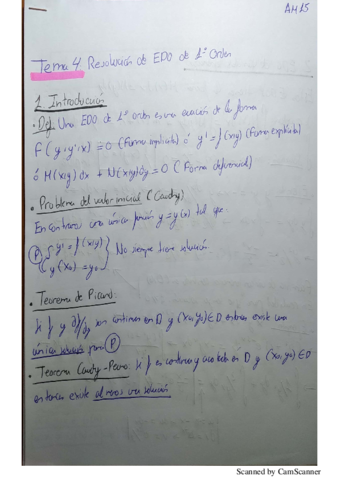 AM15
Tema 4 Resolución de EDO de 1º Orden
1. Introducción
• Def Una EDO de 1º orden es una ecuación de la forma
F(y, y', x) = 0 (Forma implícita) ó y' = f(x,y) (Forma explícita)
ó M(x,y) dx + N(x,y) dy = 0 (Forma diferencial)
• Problema del valor inicial (Cauchy)
Encontrar una única función y = y(x) tal que
P { y' = f(x,y)
y(x0) = y0 } No siempre tiene solución.
• Teorema de Picard:
Si f y ∂f/∂y son continuas en D y (x0,y0) ∈ D entonces existe una
única solución para P
• Teorema Cauchy-Peano: Si f es continua y acotada en D y (x0,y0) ∈ D
entonces existe al menos una solución
Scanned by CamScanner